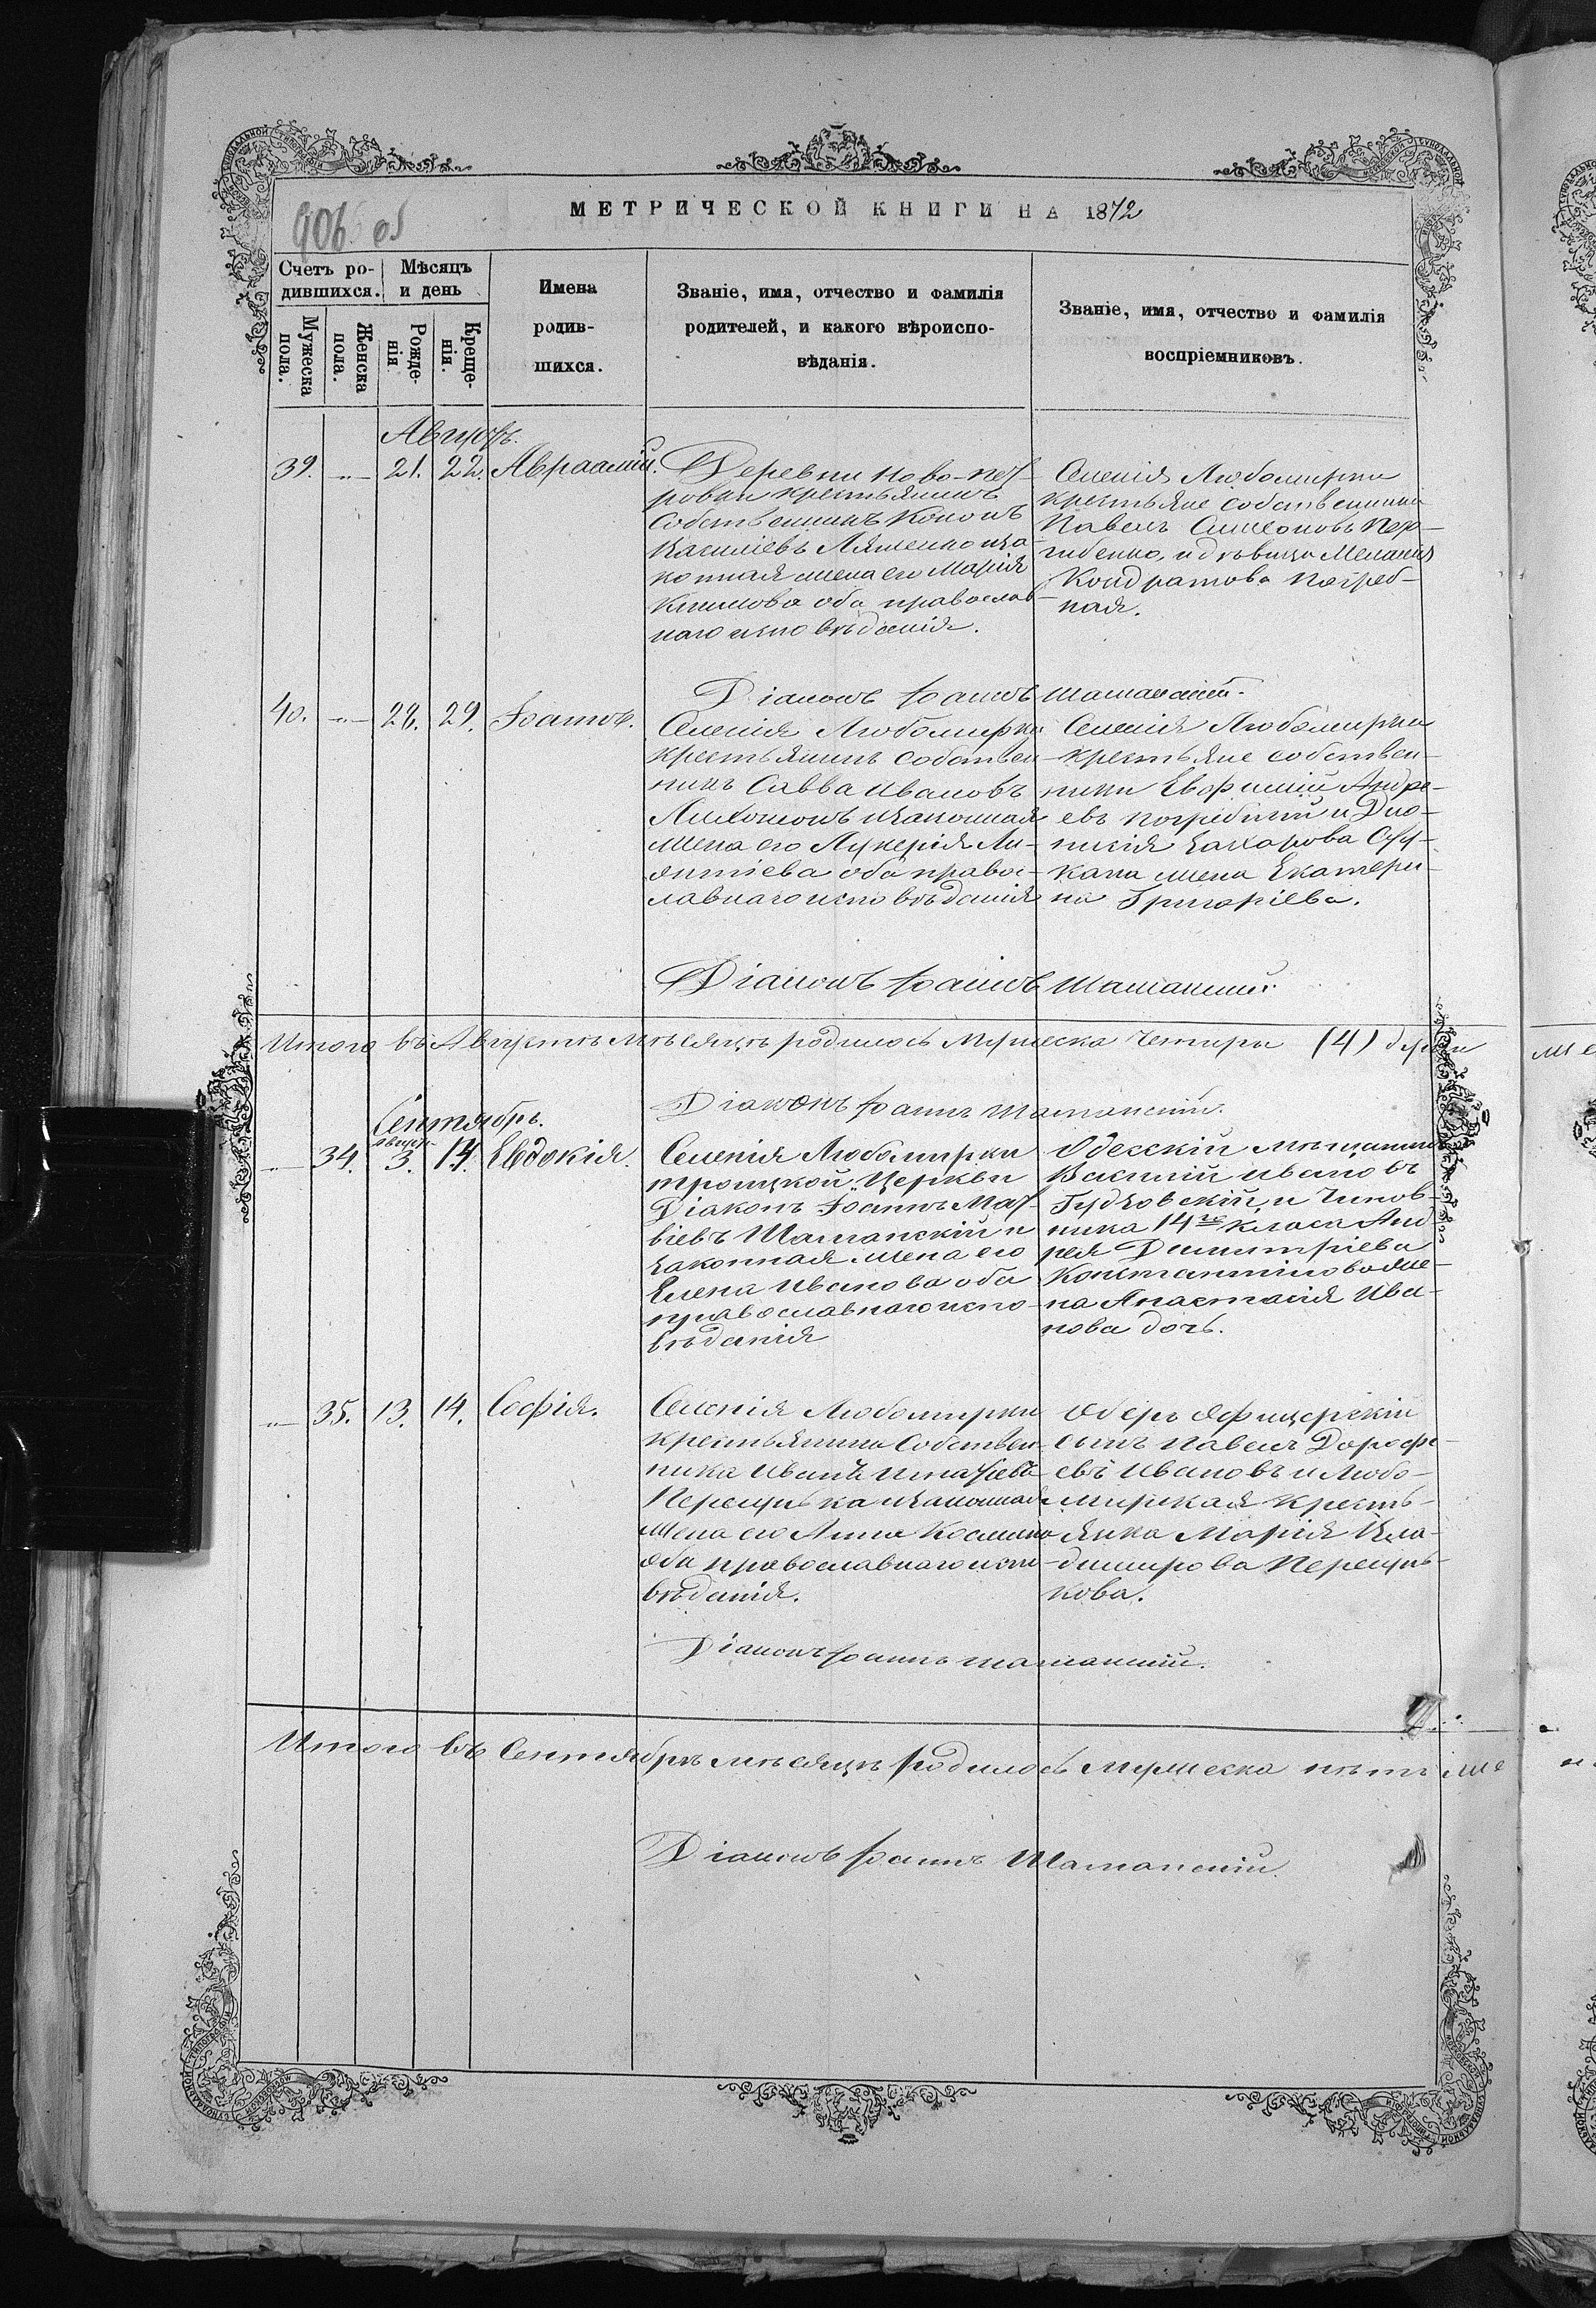 МЕТРИЧЕСКОЙ КНИГИ НА 1872
906 об
Счетъ ро-
дившихся.
Мужеска
пола.
Женска
пола.
Мѣсяцъ
и день
Рожде-
нія
Креще-
нія.
Имена
родив-
шихся.
Званіе, имя, отчество и фамилія
родителей, и какого вѣроиспо-
вѣданія.
Званіе, имя, отчество и фамилія
воспріемниковъ.
Августъ.
39. -"- 21. 22. Авраамій.
Деревни Ново-пет-
ровки крестьянинъ
собственникъ Кононъ
Василіевъ Ляшенко иза-
конная жена его Марія
Климова оба православ-
наго исповѣданія.
Селенія Любомирки
крестьяне собственники
Павелъ Симеоновъ
и дѣвица Меланія
Кондратова Погреб-
ная.
Діаконъ Іоаннъ Шаманскій.
40. -"- 28. 29. Іоаннъ.
Селенія Любомирки
крестьянинъ собствен-
никъ Савва Ивановъ
изаконная
жена его Лукерія Ли-
оба правос-
лавнаго исповѣданія
Селенія Любомирки
крестьяне собствен-
ники Евфимій Андре-
евъ Погребный и Дио-
нисія Захарова
жена Екатери-
на Григоріева.
Діаконъ Іоаннъ Шаманскій.
Итого въ Августѣ мѣсяцѣ родилось Мужеска четыри (4) души
Діаконъ Іоаннъ Шаманскій.
Сентябрь.
-"- 34. 3. 14. Евдокія.
Селенія Любомирки
троицкой Церкви
Діаконъ Іоаннъ Мат-
віевъ Шаманскій и
законная жена его
Елена Иванова оба
православнаго испо-
вѣданія
Одесскій мѣщанинъ
Василій Ивановъ
и Чинов-
ника 14го класа Анд
рея Димитріева
Константинова же-
на Анастасія Ива-
нова дочь.
-"- 35. 13. 14. Софія.
Селенія Любомирки
крестьянина Собствен-
ника Иванъ Игнатіевъ
изаконная
жена его Анна Космина
оба православнаго испо-
вѣданія.
Оберъ Офицерскій
сынъ Павелъ Дорофе-
евъ Ивановъ и Любо-
мирская кресть-
янка Марія Вла-
димирова
кова.
Діаконъ Іоаннъ Шаманскій.
Итого въ Сентябрѣ мѣсяцѣ родилось мужеска нѣтъ же
Діаконъ Іоаннъ Шаманскій